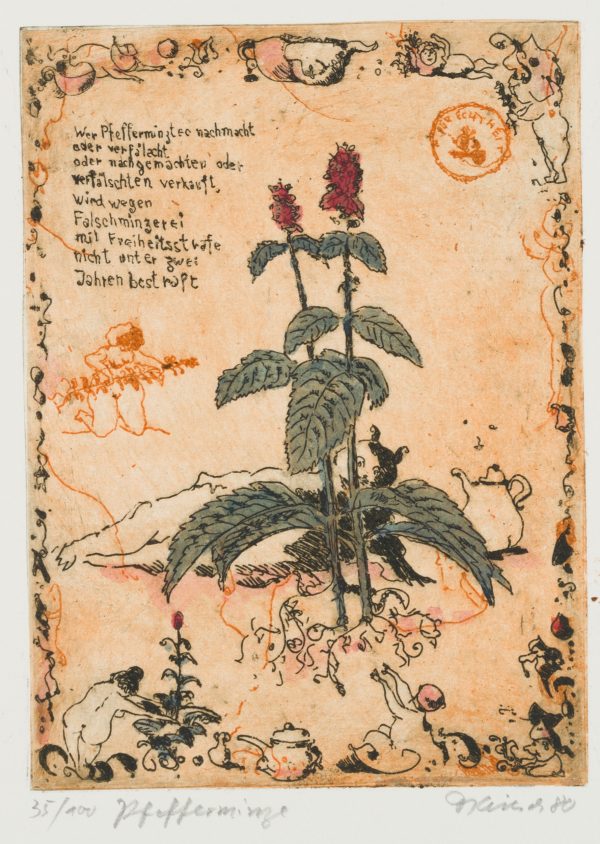 Wer Pfefferminztee nachmacht
oder verfälscht
oder nachgemachten oder
verfälschten verkauft,
wird wegen
Falschminzerei
mit Freiheitsstrafe
nicht unter zwei
Jahren bestraft
35/100 Pfefferminze
80